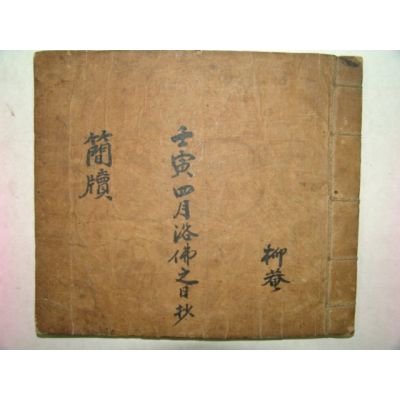 柳菴
壬寅四月浴佛之日抄
簡牘